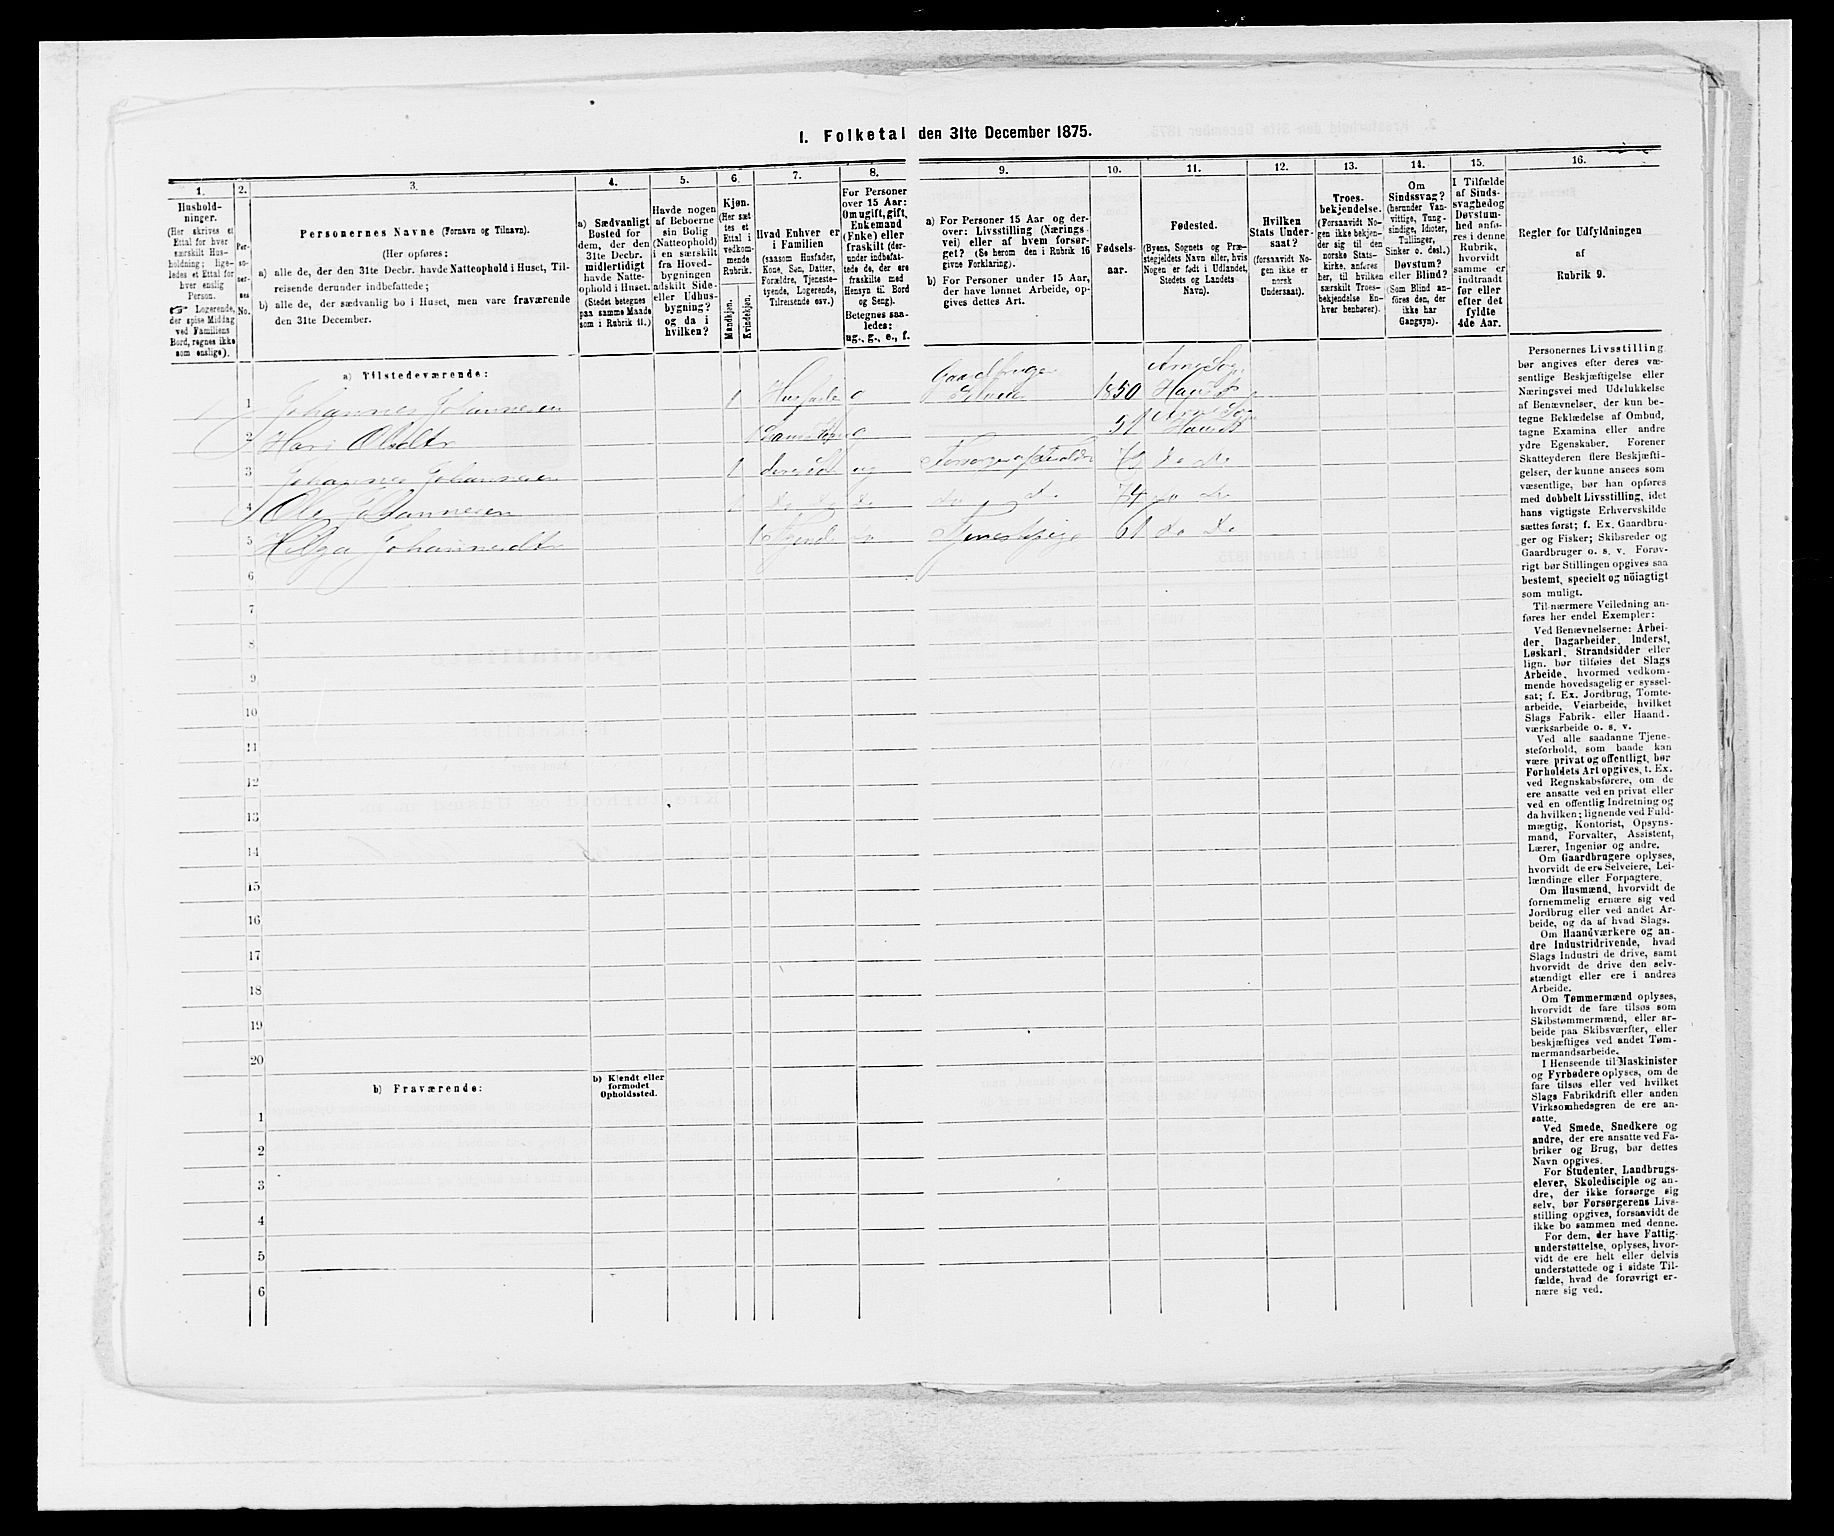 1. Folketal den 31te December 1875.
1.
2.
3.
4.
5.
6.
7.
8.
9.
10.
11.
12.
13.
14.
15.
16.
Hushold-
ninger.
(Her skrives et
Ettal for hver
særskilt Hus-
holdning; lige-
ledes et Ettal for
hver enslig
Person.
☞ Logerende,
der spise Middag
ved Familiens
Bord, regnes ikke
som enslige).
Per-
so-
ner-
nes
No.
Personernes Navne (Fornavn og Tilnavn).
(Her opføres:
a) alle de, der den 31te Decbr. havde Natteophold i Huset, Til-
reisende derunder indbefattede;
b) alle de, der sædvanlig bo i Huset, men vare fraværende
den 31te December.
a) Sædvanligt
Bosted for
dem, der den
31te Decbr.
midlertidigt
havde Natte-
ophold i Huset.
(Stedet betegnes
paa samme Maade
som i Rubrik 11.)
Havde nogen
af Beboerne
sin Bolig
(Natteophold)
i en særskilt
fra Hoved-
bygningen
adskilt Side-
eller Udhus-
bygning?
og da i
hvilken?
Kjøn.
(Her sæt-
tes et
Ettal i
vedkom-
mende
Rubrik.
Mandkjøn.
Kvindekjøn.
Hvad Enhver er
i Familien
(saasom Husfader,
Kone, Søn, Datter,
Forældre, Tjeneste-
tyende, Logerende,
Tilreisende osv.)
For Personer
over 15 Aar:
Om ugift, gift,
Enkemand
(Enke) eller
fraskilt (der-
under indbefat-
tede de, der ere
fraskilte med
Hensyn til Bord
og Seng).
Betegnes saa-
ledes:
ug., g., e., f.
a) For Personer 15 Aar og der-
over: Livsstilling (Nærings-
vei) eller af hvem forsør-
get? (Se herom den i Rubrik 16
givne Forklaring).
b) For Personer under 15 Aar,
der have lønnet Arbeide, op-
gives dettes Art.
Fødsels-
aar.
Fødested.
(Byens, Sognets og Præ-
stegjeldets Navn eller, hvis
Nogen er født i Udlandet,
Stedets og Landets
Navn).
Hvilken
Stats Under-
saat?
(forsaavidt No-
gen ikke er
norsk
Undersaat).
Troes-
bekjendelse.
(Forsaavidt No-
gen ikke bekjen-
der sig til den
norske Stats-
kirke, anføres
her, til hvilken
særskilt Troes-
bekjendelse En-
hver henhører).
Om
Sindssvag?
(herunder Van-
vittige, Tung-
sindige, Idioter,
Tullinger,
Sinker o. desl.)
Døvstum?
eller Blind?
(Som Blind an-
føres den, der
ikke har
Gangsyn).
I Tilfælde
af Sinds-
svaghed og
Døvstum-
hed anfø-
res i denne
Rubrik,
hvorvidt
samme er
indtraadt
før eller
efter det
fyldte
4de Aar.
Regler for Udfyldningen
af
Rubrik 9.
a) Tilstedeværende:
1 Johannes Johannesen 1 g Gaardbruger 1850 Arne Sogn
2 1 g 51
3 Johannes Johannesen 1 ug do do
4 Ole Johannesen 1 do do do 74 do do
5 Helga Johannesdtr 1 Tjenestepige 61 do do
6
7
8
9
10
11
12
13
14
15
16
17
18
19
20
b) Fraværende:
b) Kjendt eller
formodet
Opholdssted.
1
2
3
4
5
6
Personernes Livsstilling
bør angives efter deres væ-
sentlige Beskjæftigelse eller
Næringsvei med Udelukkelse
af Benævnelser, der kun be-
tegne Beklædelse af Ombud,
tagne Examina eller andre
ydre Egenskaber. Forener
Skatteyderen flere Beskjæfti-
gelser, der kunne ansees som
væsentlige, bør han opføres
med dobbelt Livsstilling, idet
hans vigtigste Erhvervskilde
sættes først; f. Ex. Gaardbru-
ger og Fisker; Skibsreder og
Gaardbruger o. s. v. Forøv-
rigt bør Stillingen opgives saa
bestemt, specielt og nöiagtigt
som muligt.
Til nærmere Veiledning an-
føres her endel Exempler:
Ved Benævnelserne: Arbei-
der, Dagarbeider, Inderst,
Løskarl, Strandsidder eller
lign. bør tilføies det Slags
Arbeide, hvormed vedkom-
mende hovedsagelig er syssel-
sat; f. Ex. Jordbrug, Tomte-
arbeide, Veiarbeide, hvilket
Slags Fabrik- eller Haand-
værksarbeide o. s. v.
Ved alle saadanne Tjene-
steforhold, som baade kan
være privat og offentligt, bør
Forholdets Art opgives, t. Ex.
ved Regnskabsførere, om de
ere ansatte ved en privat eller
ved en offentlig Indretning og
da hvilken; lignende ved Fuld-
mægtig, Kontorist, Opsyns-
mand, Forvalter, Assistent,
Lærer, Ingeniør og andre.
Om Gaardbrugere oplyses,
hvorvidt de ere Selveiere, Lei-
lændinge eller Forpagtere.
Om Husmænd, hvorvidt de
fornemmelig ernære sig ved
Jordbrug eller ved andet Ar-
beide, og da af hvad Slags.
Om Haandværkere og an-
dre Industridrivende, hvad
Slags Industri de drive, samt
hvorvidt de drive den selv-
stændigt eller ere i andres
Arbeide.
Om Tømmermænd oplyses,
hvorvidt de fare tilsøs som
Skibstømmermænd, eller ar-
beide paa Skibsværfter, eller
beskjæftiges ved andet Tøm-
mermandsarbeide.
I Henseende til Maskinister
og Fyrbødere oplyses, om de
fare tilsøs eller ved hvilket
Slags Fabrikdrift eller anden
Virksomhedsgren de ere an-
satte.
Ved Smede, Snedkere og
andre, der ere ansatte ved Fa-
briker og Brug, bør dettes
Navn opgives.
For Studenter, Landbrugs-
elever, Skoledisciple og an-
dre, der ikke forsørge sig
selv, bør Forsørgerens Livs-
stilling opgives, forsaavidt de
ikke bo sammen med denne.
For dem, der have Fattig-
understøttelse, oplyses, hvor-
vidt de ere helt eller delvis
understøttede og i sidste Til-
fælde, hvad de forøvrigt er-
nære sig ved.